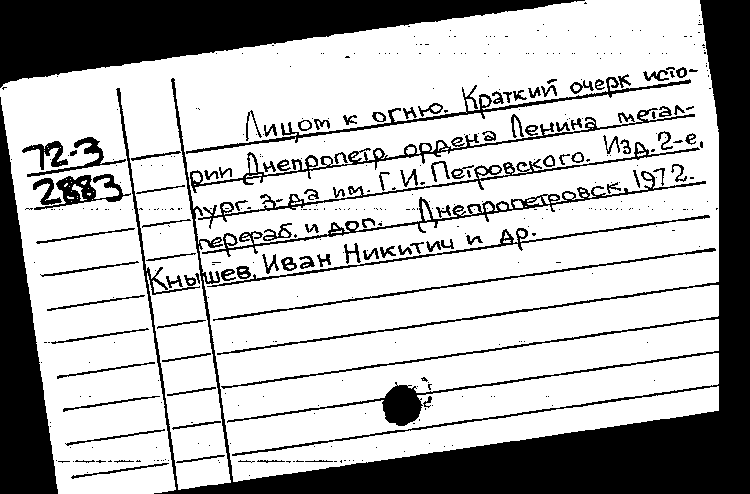 72-3
2883
Лицом к огню. Краткий очерк исто-
рии Днепропетр ордена Ленина метал-
лург. з-да им. Г. И. Петровского. Изд. 2-е,
перераб. и доп. Днепропетровск, 1972.
Кнышев, Иван Никитич и др.